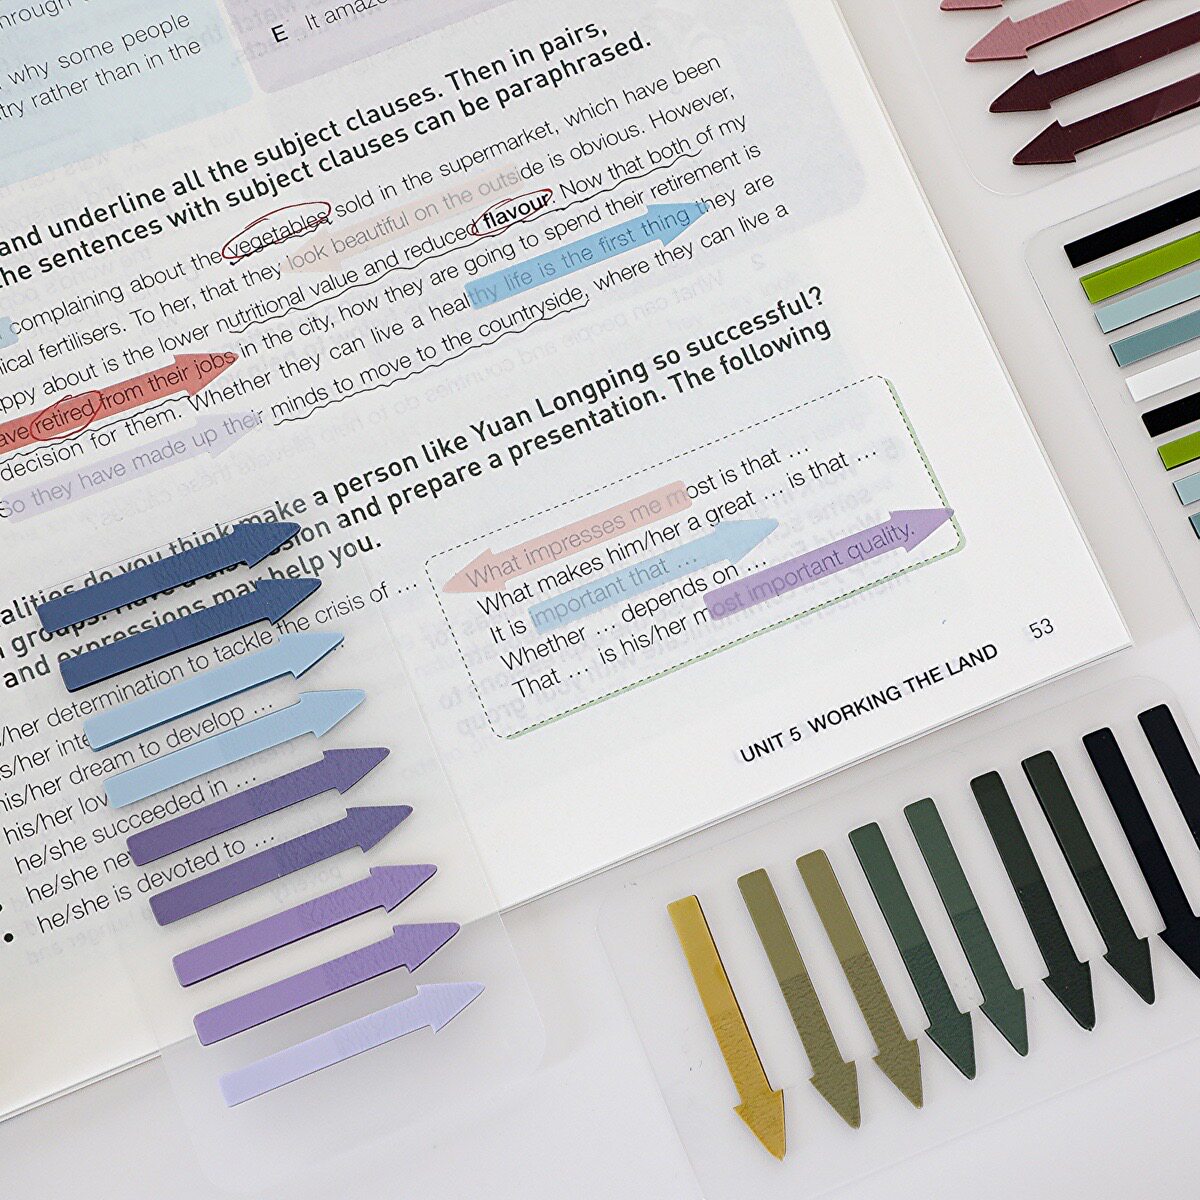 hrough
, why some people
try rather than in the
E It amaze
and underline all the subject clauses. Then in pairs,
he sentences with subject clauses can be paraphrased.
complaining about the vegetables sold in the supermarket, which have been
ical fertilisers. To her, that they look beautiful on the outside is obvious. However,
ppy about is the lower nutritional value and reduced flavour. Now that both of my
ave retired from their jobs in the city, how they are going to spend their retirement is
decision for them. Whether they can live a healthy life is the first thing they are
So they have made up their minds to move to the countryside, where they can live a
alities do you think make a person like Yuan Longping so successful?
n groups. Have a discussion and prepare a presentation. The following
and expressions may help you.
s/her determination to tackle the crisis of …
is/her inte
his/her dream to develop …
his/her lov
he/she succeeded in …
he/she ne
• he/she is devoted to …
What impresses me most is that …
What makes him/her a great … is that …
It is important that …
Whether … depends on …
That … is his/her most important quality.
UNIT 5 WORKING THE LAND 53